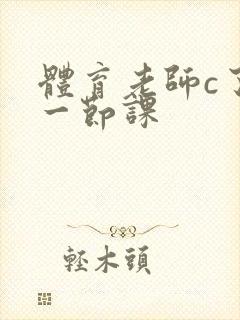 體育老師c了
一節課
輕木頭